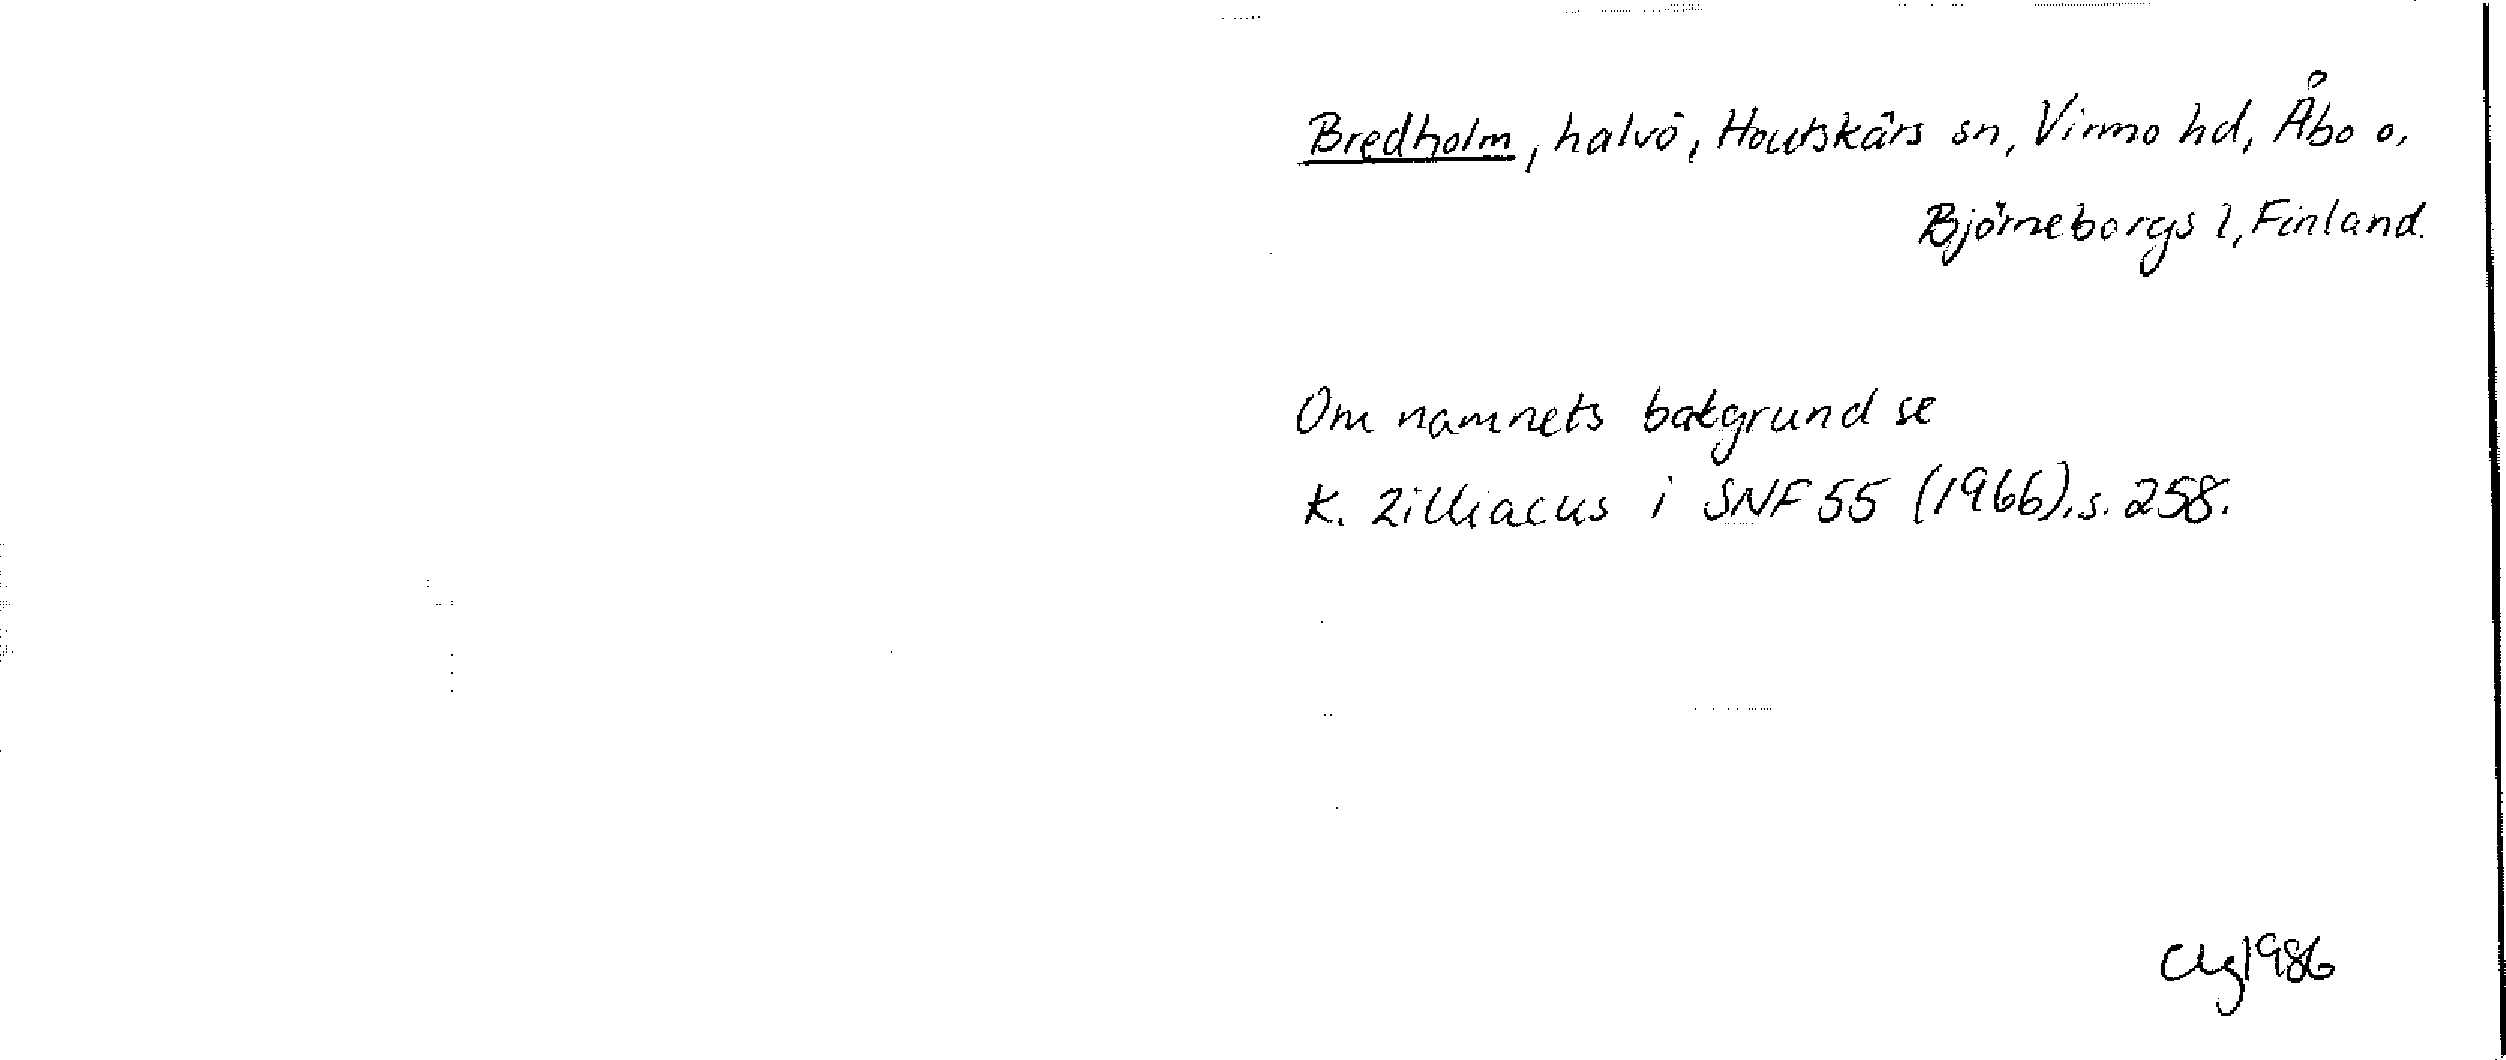 Bredholm, halvö, Houtskärs sn, Virmo hd, Åbo o.
Björneborgs l, Finland.
Om namnets bakgrund se
K. Zilliacus i SNF 55 (1966), s. 258.
1986